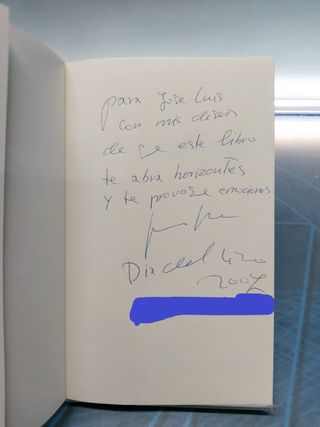 para Jose Luis
con mis deseos
de que este libro
te abra horizontes
y te provoque emociones.
Dia del Libro
2007